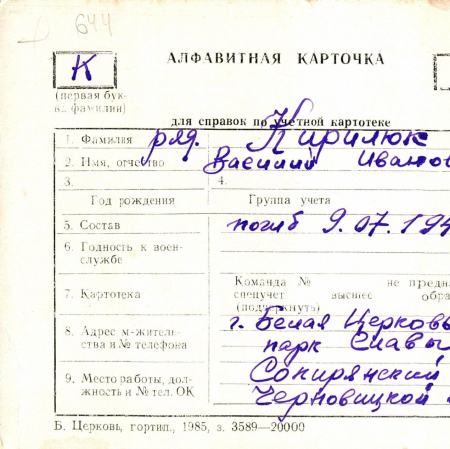 644
АЛФАВИТНАЯ КАРТОЧКА
К
(первая бук-
ва фамилии)
для справок по учетной картотеке
1. Фамилия ряд. Кирилюк
2. Имя, отчество Василий Иванов
3. 4.
Год рождения Группа учета
5. Состав погиб 9.07.194
6. Годность к воен-
службе
Команда № не предна
7. Картотека спецучет высшее обра
(подчеркнуть)
8. Адрес м-житель-
ства и № телефона
г. Белая Церковь
парк Славы
9. Место работы, дол-
жность и № тел. ОК
Сокирянский
Черновицкой
Б. Церковь, гортип., 1985, з. 3589—20000